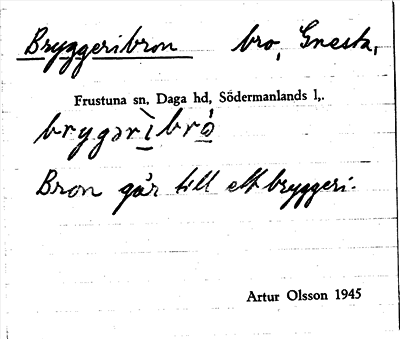 Bryggeribron bro, Gnesta,
Frustuna sn, Daga hd, Södermanlands l,.
brygərìbrò
Bron går till ett bryggeri.
Artur Olsson 1945